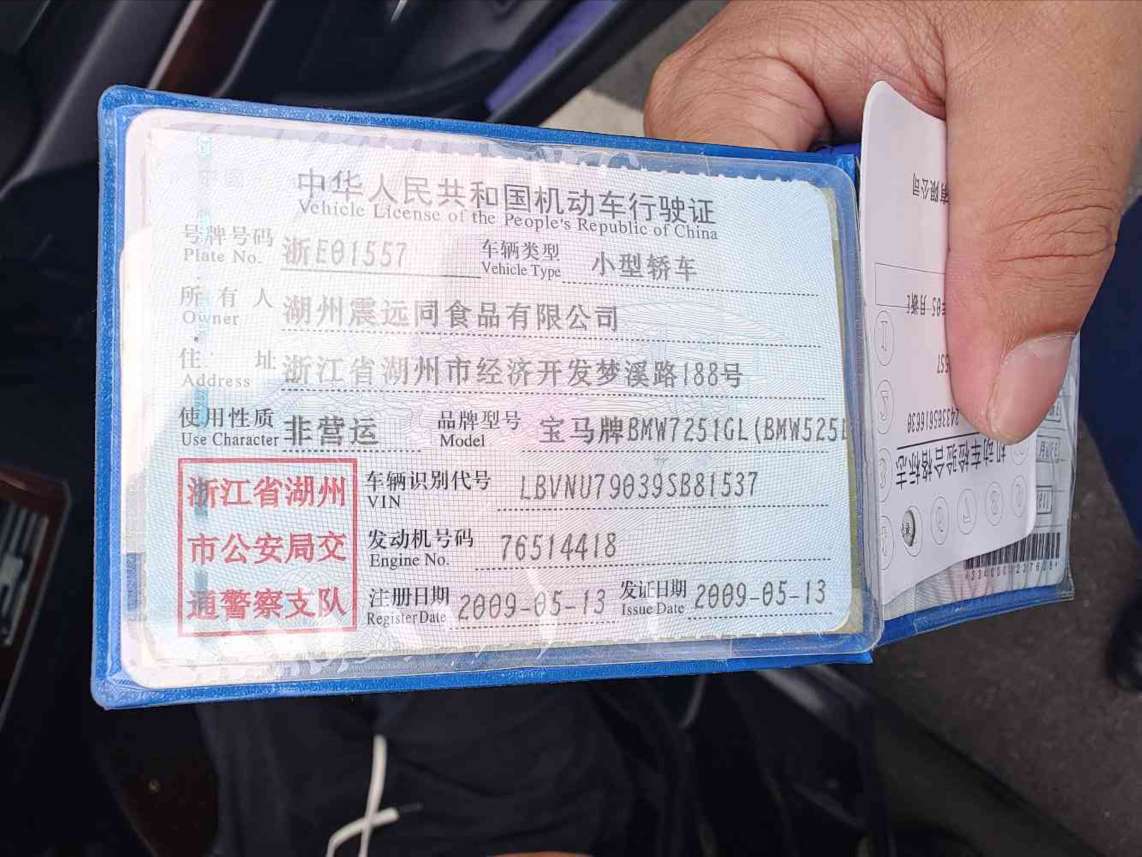 中华人民共和国机动车行驶证
Vehicle License of the People's Republic of China
号牌号码 浙E01557 车辆类型 小型轿车
Plate No. Vehicle Type
所有人 湖州震远同食品有限公司
Owner
住址 浙江省湖州市经济开发梦溪路188号
Address
使用性质 非营运 品牌型号 宝马牌BMW7251GL(BMW525L
Use Character Model
浙江省湖州
市公安局交
通警察支队
车辆识别代号 LBVNU79039SB81537
VIN
发动机号码 76514418
Engine No.
注册日期 2009-05-13 发证日期 2009-05-13
Register Date Issue Date
有限公司
机动车检验合格标志